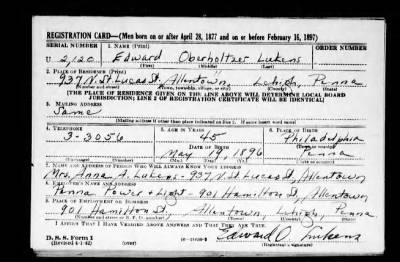 REGISTRATION CARD—(Men born on or after April 28, 1877 and on or before February 16, 1897)
SERIAL NUMBER 1. NAME (Print)
U 2120 Edward Oberholtzer Lukens
(First) (Middle) (Last)
2. PLACE OF RESIDENCE (Print)
937 N. St. Lucas St. Allentown, Lehigh, Penna
(Number and street) (Town, township, village, or city) (County) (State)
[THE PLACE OF RESIDENCE GIVEN ON THE LINE ABOVE WILL DETERMINE LOCAL BOARD
JURISDICTION; LINE 2 OF REGISTRATION CERTIFICATE WILL BE IDENTICAL]
3. MAILING ADDRESS
Same
[Mailing address if other than place indicated on line 2. If same insert word same]
4. TELEPHONE 5. AGE IN YEARS 6. PLACE OF BIRTH
3-3056 45 Philadelphia
DATE OF BIRTH (Town or county)
May 1896 Penna
(Exchange) (Number) (Mo.) (Day) (Yr.) (State or country)
7. NAME AND ADDRESS OF PERSON WHO WILL ALWAYS KNOW YOUR ADDRESS
Mrs. Anna A. Lukens-937 N. St. Lucas St, Allentown
8. EMPLOYER'S NAME AND ADDRESS
Penna Power & Light-901 Hamilton St, Allentown
9. PLACE OF EMPLOYMENT OR BUSINESS
901 Hamilton St, Allentown, Lehigh, Penna
(Number and street or R. F. D. number) (Town) (County) (State)
I AFFIRM THAT I HAVE VERIFIED ABOVE ANSWERS AND THAT THEY ARE TRUE.
D. S. S. Form 1 Edward O. Lukens
(Revised 4-1-42) (over) (Registrant's signature)